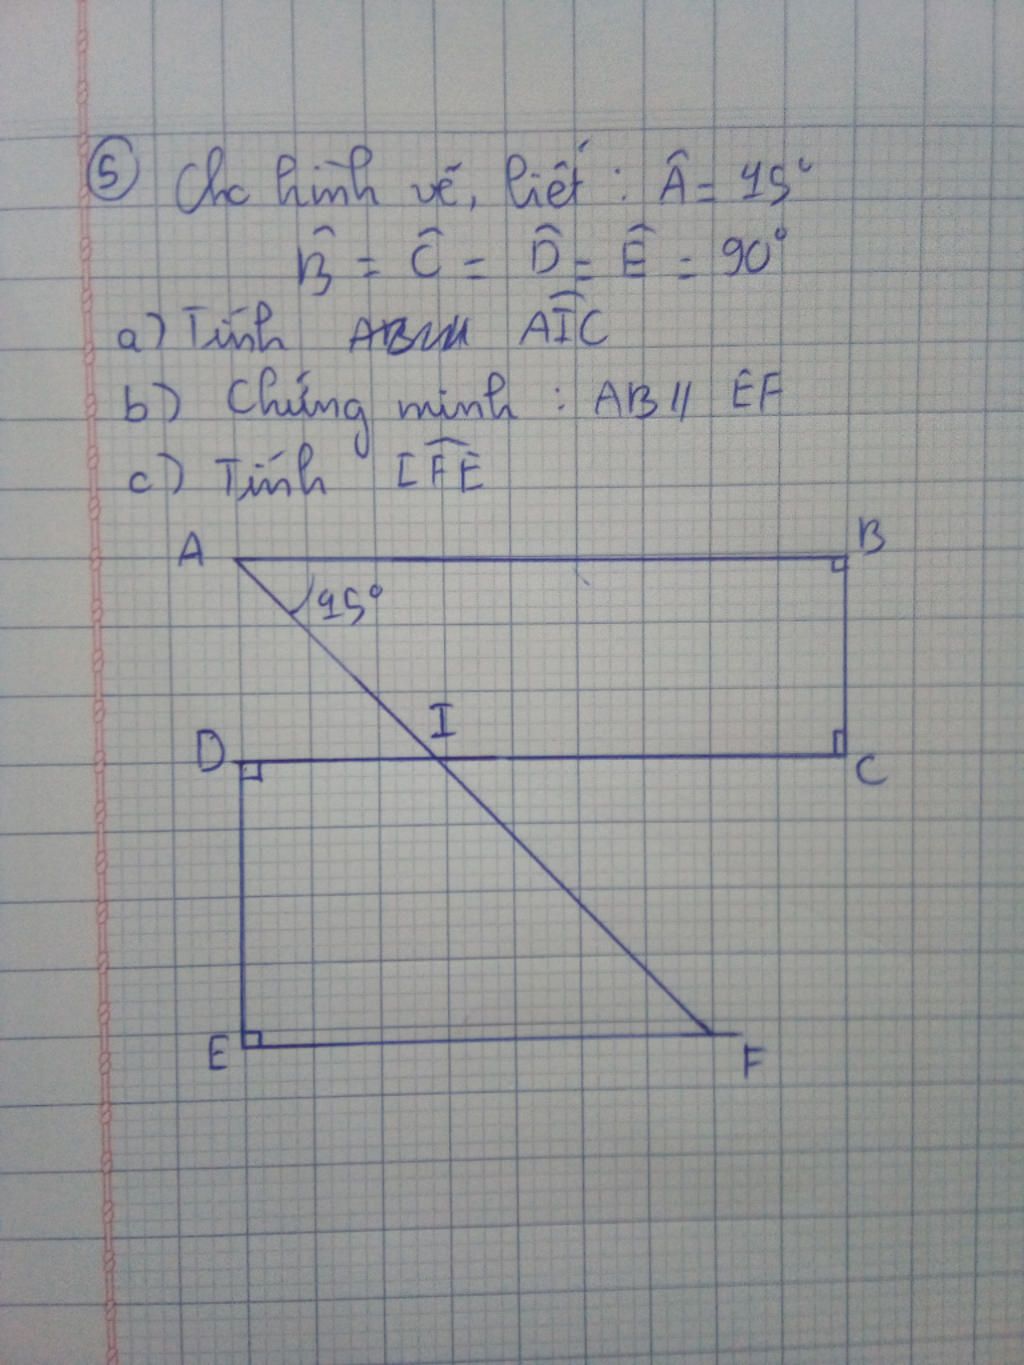 5 Cho hình vẽ, biết : Â = 45°
B̂ = Ĉ = D̂ = Ê = 90°
a) Tính AÎC
b) Chứng minh : AB // EF
c) Tính IF̂E
A
B
45°
I
D
C
E
F